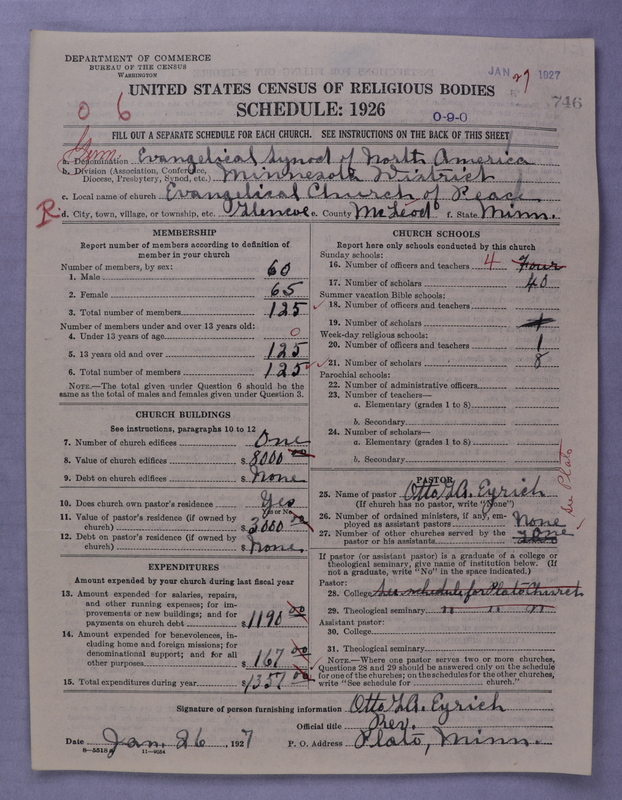 DEPARTMENT OF COMMERCE
BUREAU OF THE CENSUS
WASHINGTON
JAN 27 1927
UNITED STATES CENSUS OF RELIGIOUS BODIES
746
0 6
SCHEDULE: 1926
0-9-0
FILL OUT A SEPARATE SCHEDULE FOR EACH CHURCH. SEE INSTRUCTIONS ON THE BACK OF THIS SHEET
Germ
a. Denomination Evangelical Synod of North America
b. Division (Association, Conference, Diocese, Presbytery, Synod, etc.) Minnesota District
c. Local name of church Evangelical Church of Peace
R.
d. City, town, village, or township, etc. Glencoe e. County McLeod f. State Minn.
MEMBERSHIP
Report number of members according to definition of
member in your church
Number of members, by sex:
1. Male 60
2. Female 65
3. Total number of members 125
Number of members under and over 13 years old:
4. Under 13 years of age 0
5. 13 years old and over 125
6. Total number of members 125
NOTE.—The total given under Question 6 should be the
same as the total of males and females given under Question 3.
CHURCH BUILDINGS
See instructions, paragraphs 10 to 12
7. Number of church edifices One
8. Value of church edifices $ 8000 00
9. Debt on church edifices $ None
10. Does church own pastor's residence Yes
(Yes or No)
11. Value of pastor's residence (if owned by
church) $ 3000 00
12. Debt on pastor's residence (if owned by
church) $ None
EXPENDITURES
Amount expended by your church during last fiscal year
13. Amount expended for salaries, repairs,
and other running expenses; for im-
provements or new buildings; and for
payments on church debt $ 1190 00
14. Amount expended for benevolences, in-
cluding home and foreign missions; for
denominational support; and for all
other purposes $ 167 00
15. Total expenditures during year $ 1357 00
CHURCH SCHOOLS
Report here only schools conducted by this church
Sunday schools:
16. Number of officers and teachers 4 Four
17. Number of scholars 40
Summer vacation Bible schools:
18. Number of officers and teachers
19. Number of scholars
Week-day religious schools:
20. Number of officers and teachers 1
21. Number of scholars 8
Parochial schools:
22. Number of administrative officers
23. Number of teachers—
a. Elementary (grades 1 to 8)
b. Secondary
24. Number of scholars—
a. Elementary (grades 1 to 8)
b. Secondary
PASTOR
25. Name of pastor Otto L.A. Eyrich
(If church has no pastor, write "None")
26. Number of ordained ministers, if any, em-
ployed as assistant pastors None
27. Number of other churches served by the
pastor or his assistants One
See Plato
If pastor (or assistant pastor) is a graduate of a college or
theological seminary, give name of institution below. (If
not a graduate, write "No" in the space indicated.)
Pastor:
28. College See schedule for Plato Church
29. Theological seminary " " "
Assistant pastor:
30. College
31. Theological seminary
NOTE.—Where one pastor serves two or more churches,
Questions 28 and 29 should be answered only on the schedule
for one of the churches; on the schedules for the other churches,
write "See schedule for church."
Signature of person furnishing information Otto L.A. Eyrich
Official title Rev.
Date Jan. 26, 1927 P. O. Address Plato, Minn.
8-5518 11-9054